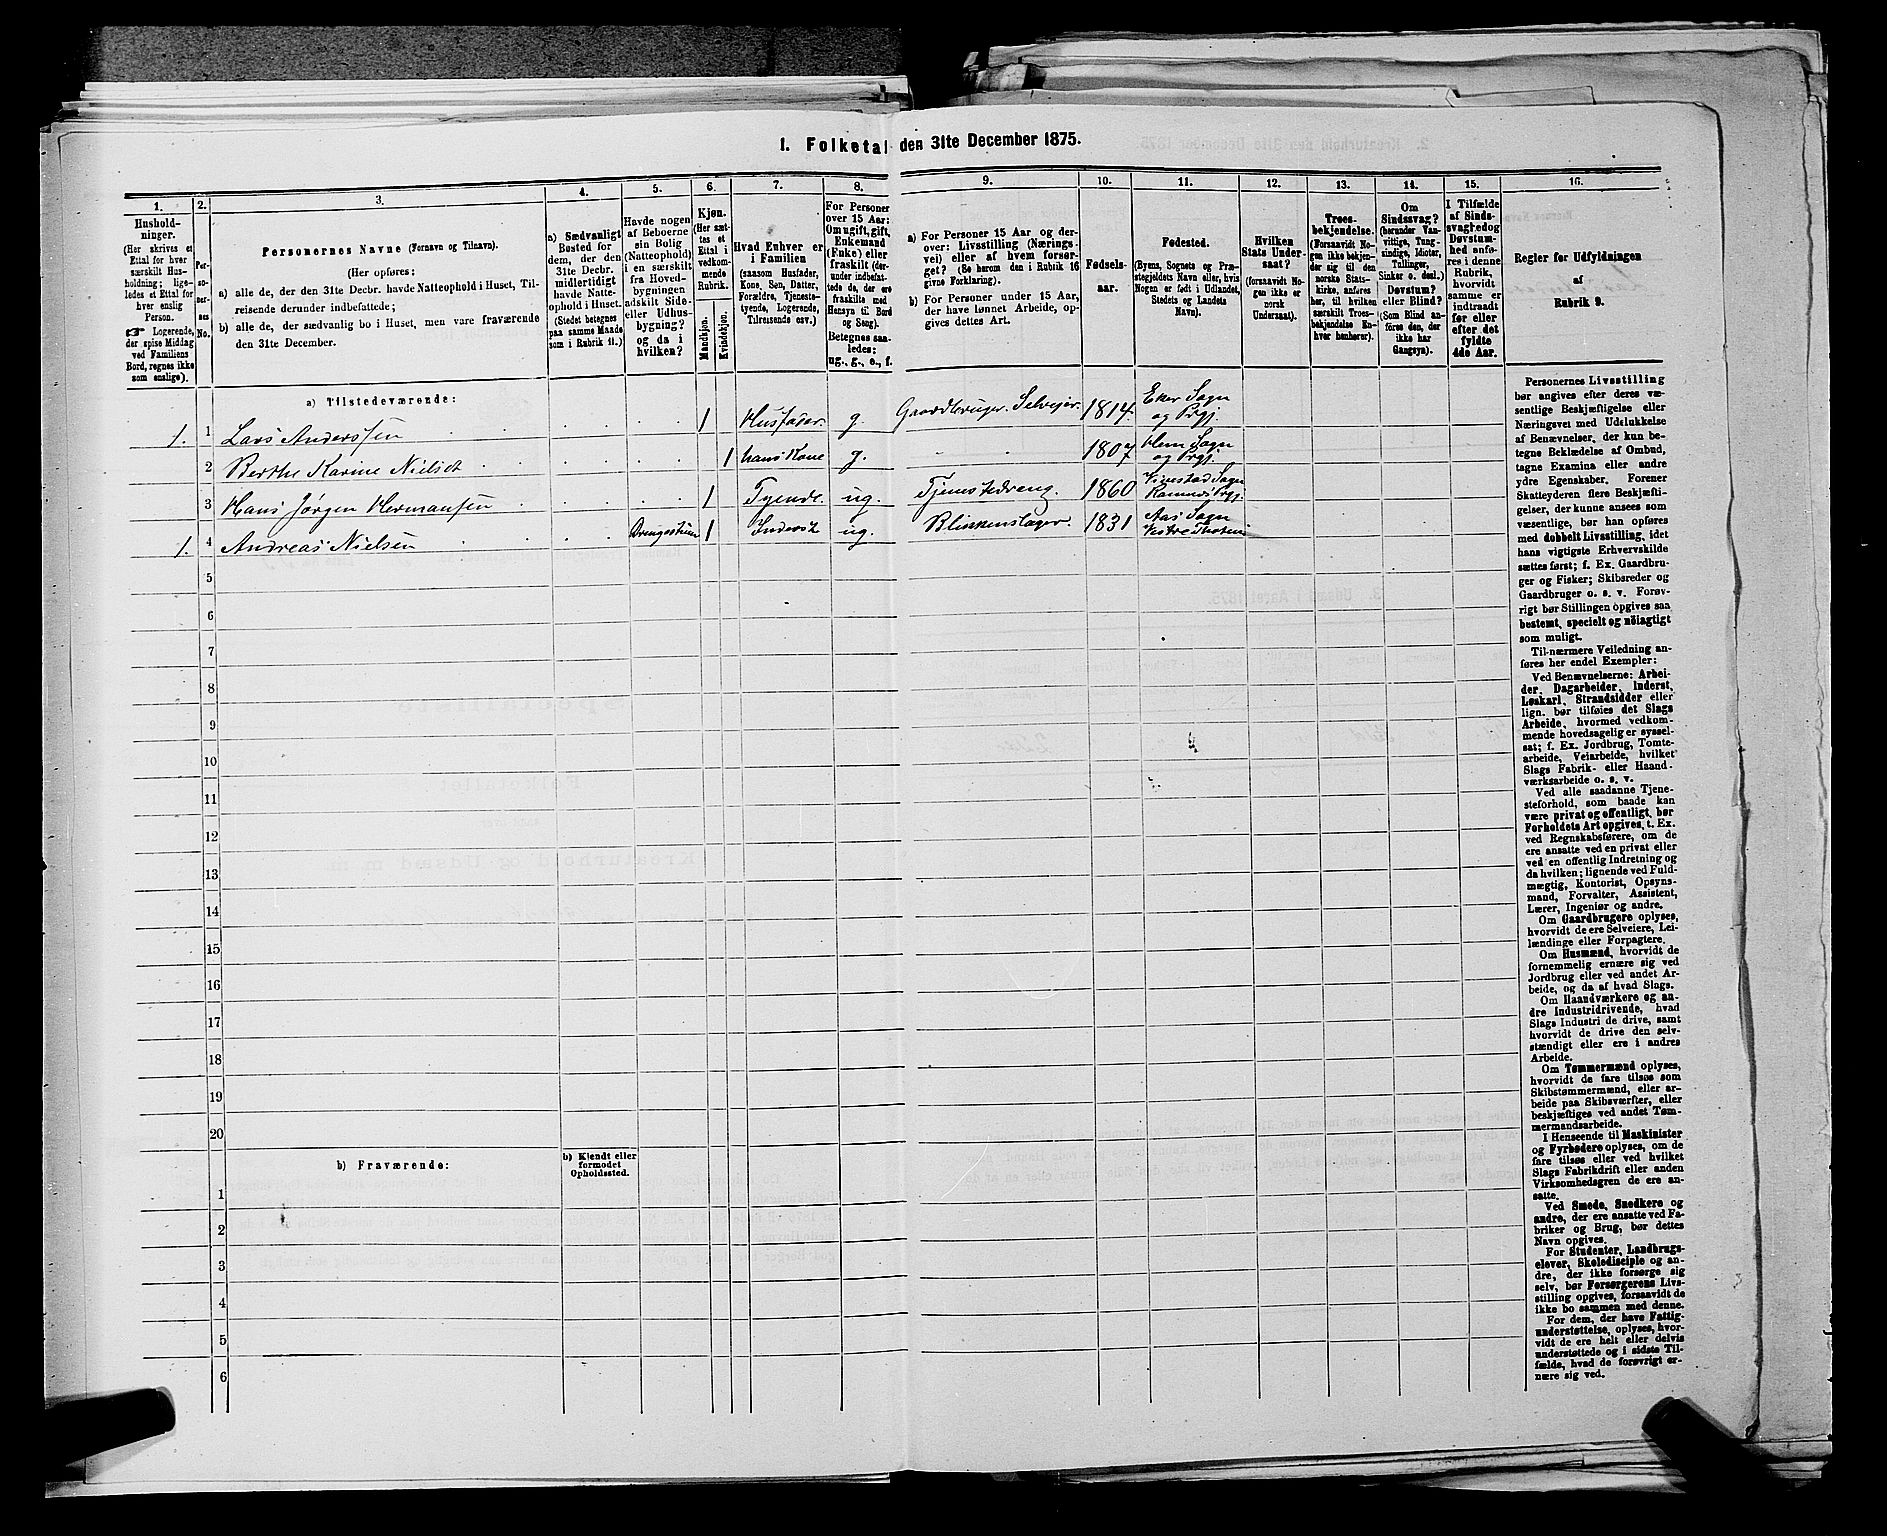 1. Folketal den 31te December 1875.
1.
Hushold-
ninger.
(Her skrives et
Ettal for hver
særskilt Hus-
holdning; lige-
ledes et Ettal for
hver enslig
Person.
☞ Logerende,
der spise Middag
ved Familiens
Bord, regnes ikke
som enslige).
2.
Per-
so-
ner-
nes
No.
3.
Personernes Navne (Fornavn og Tilnavn).
(Her opføres:
a) alle de, der den 31te Decbr. havde Natteophold i Huset, Til-
reisende derunder indbefattede;
b) alle de, der sædvanlig bo i Huset, men vare fraværende
den 31te December.
4.
a) Sædvanligt
Bosted for
dem, der den
31te Decbr.
midlertidigt
havde Natte-
ophold i Huset.
(Stedet betegnes
paa samme Maade
som i Rubrik 11.)
5.
Havde nogen
af Beboerne
sin Bolig
(Natteophold)
i en særskilt
fra Hoved-
bygningen
adskilt Side-
eller Udhus-
bygning?
og da i
hvilken?
6.
Kjøn.
(Her sæt-
tes et
Ettal i
vedkom-
mende
Rubrik.
Mandkjøn.
Kvindekjøn.
7.
Hvad Enhver er
i Familien
(saasom Husfader,
Kone, Søn, Datter,
Forældre, Tjeneste-
tyende, Logerende,
Tilreisende osv.)
8.
For Personer
over 15 Aar:
Om ugift, gift,
Enkemand
(Enke) eller
fraskilt (der-
under indbefat-
tede de, der ere
fraskilte med
Hensyn til Bord
og Seng).
Betegnes saa-
ledes:
ug., g., e., f.
9.
a) For Personer 15 Aar og der-
over: Livsstilling (Nærings-
vei) eller af hvem forsør-
get? (Se herom den i Rubrik 16
givne Forklaring).
b) For Personer under 15 Aar,
der have lønnet Arbeide, op-
gives dettes Art.
10.
Fødsels-
aar.
11.
Fødested.
(Byens, Sognets og Præ-
stegjeldets Navn eller, hvis
Nogen er født i Udlandet,
Stedets og Landets
Navn).
12.
Hvilken
Stats Under-
saat?
(forsaavidt No-
gen ikke er
norsk
Undersaat).
13.
Troes-
bekjendelse.
(Forsaavidt No-
gen ikke bekjen-
der sig til den
norske Stats-
kirke, anføres
her, til hvilken
særskilt Troes-
bekjendelse En-
hver henhører).
14.
Om
Sindssvag?
(herunder Van-
vittige, Tung-
sindige, Idioter,
Tullinger,
Sinker o. desl.)
Døvstum?
eller Blind?
(Som Blind an-
føres den, der
ikke har
Gangsyn).
15.
I Tilfælde
af Sinds-
svaghed og
Døvstum-
hed anfø-
res i denne
Rubrik,
hvorvidt
samme er
indtraadt
før eller
efter det
fyldte
4de Aar.
16.
Regler for Udfyldningen
af
Rubrik 9.
a) Tilstedeværende:
1. 1 Lars Anderssen 1 Husfader. g. Gaardbruger. Selveier. 1814. Eker Sogn og Prgj.
2 Berthe Karine Nielsdt 1 hans Kone g. 1807 Hem Sogn og Prgj.
3 Hans Jørgen Hermansen 1 Tyende. ug. Tjenestedreng. 1860 Vivestad Sogn Ramnes Prgj.
1. 4 Andreas Nielsen Drengestuen 1 Inderst ug. Blikkenslager. 1831 Aas Sogn Vestre Thoten
5
6
7
8
9
10
11
12
13
14
15
16
17
18
19
20
b) Fraværende:
b) Kjendt eller
formodet
Opholdssted.
1
2
3
4
5
6
Personernes Livsstilling
bør angives efter deres væ-
sentlige Beskjæftigelse eller
Næringsvei med Udelukkelse
af Benævnelser, der kun be-
tegne Beklædelse af Ombud,
tagne Examina eller andre
ydre Egenskaber. Forener
Skatteyderen flere Beskjæfti-
gelser, der kunne ansees som
væsentlige, bør han opføres
med dobbelt Livsstilling, idet
hans vigtigste Erhvervskilde
sættes først; f. Ex. Gaardbru-
ger og Fisker; Skibsreder og
Gaardbruger o. s. v. Forøv-
rigt bør Stillingen opgives saa
bestemt, specielt og nöiagtigt
som muligt.
Til nærmere Veiledning an-
føres her endel Exempler:
Ved Benævnelserne: Arbei-
der, Dagarbeider, Inderst,
Løskarl, Strandsidder eller
lign. bør tilføies det Slags
Arbeide, hvormed vedkom-
mende hovedsagelig er syssel-
sat; f. Ex. Jordbrug, Tomte-
arbeide, Veiarbeide, hvilket
Slags Fabrik- eller Haand-
værksarbeide o. s. v.
Ved alle saadanne Tjene-
steforhold, som baade kan
være privat og offentligt, bør
Forholdets Art opgives, t. Ex.
ved Regnskabsførere, om de
ere ansatte ved en privat eller
ved en offentlig Indretning og
da hvilken; lignende ved Fuld-
mægtig, Kontorist, Opsyns-
mand, Forvalter, Assistent,
Lærer, Ingeniør og andre.
Om Gaardbrugere oplyses,
hvorvidt de ere Selveiere, Lei-
lændinge eller Forpagtere.
Om Husmænd, hvorvidt de
fornemmelig ernære sig ved
Jordbrug eller ved andet Ar-
beide, og da af hvad Slags.
Om Haandværkere og an-
dre Industridrivende, hvad
Slags Industri de drive, samt
hvorvidt de drive den selv-
stændigt eller ere i andres
Arbeide.
Om Tømmermænd oplyses,
hvorvidt de fare tilsøs som
Skibstømmermænd, eller ar-
beide paa Skibsværfter, eller
beskjæftiges ved andet Tøm-
mermandsarbeide.
I Henseende til Maskinister
og Fyrbødere oplyses, om de
fare tilsøs eller ved hvilket
Slags Fabrikdrift eller anden
Virksomhedsgren de ere an-
satte.
Ved Smede, Snedkere og
andre, der ere ansatte ved Fa-
briker og Brug, bør dettes
Navn opgives.
For Studenter, Landbrugs-
elever, Skoledisciple og an-
dre, der ikke forsørge sig
selv, bør Forsørgerens Livs-
stilling opgives, forsaavidt de
ikke bo sammen med denne.
For dem, der have Fattig-
understøttelse, oplyses, hvor-
vidt de ere helt eller delvis
understøttede og i sidste Til-
fælde, hvad de forøvrigt er-
nære sig ved.